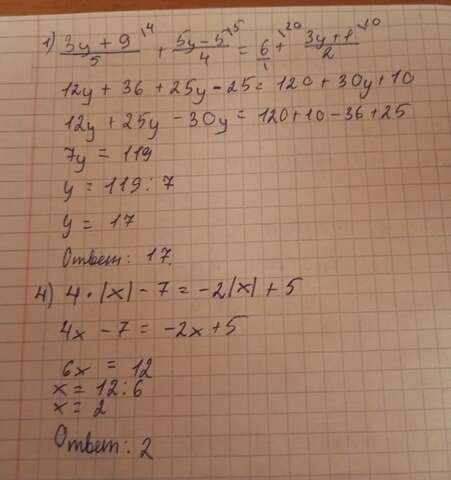 1) (3y + 9)/5 \4 + (5y - 5)/4 \5 = 6/1 \20 + (3y + 1)/2 \10
12y + 36 + 25y - 25 = 120 + 30y + 10
12y + 25y - 30y = 120 + 10 - 36 + 25
7y = 119
y = 119 : 7
y = 17
Ответ: 17.
4) 4 · |x| - 7 = -2|x| + 5
4x - 7 = -2x + 5
6x = 12
x = 12 : 6
x = 2
Ответ: 2